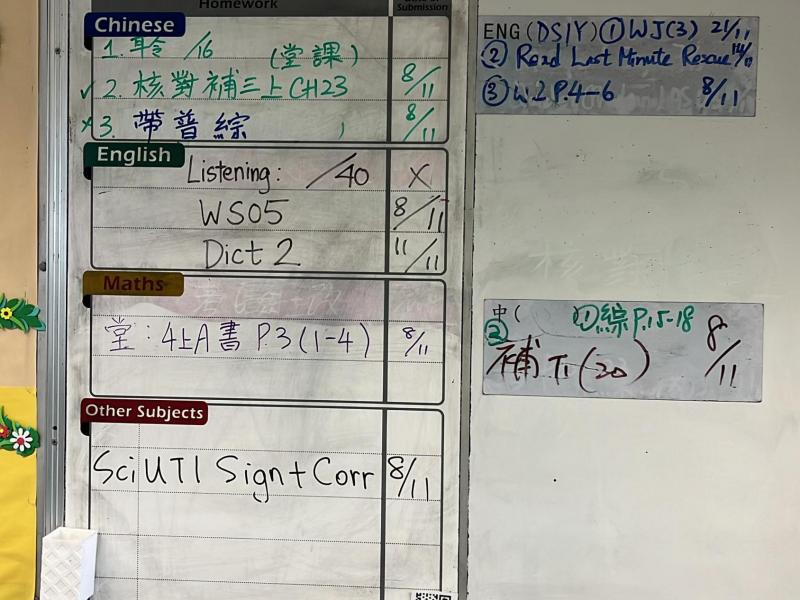 Homework
Submission
Chinese
1. 聆 /16 (堂課)
✓ 2. 核對補三上CH23 8/11
3. 帶普綜 8/11
English
Listening: /40 X
WS05 8/11
Dict 2 11/11
Maths
堂:4上A書 P.3 (1-4) 8/11
Other Subjects
Sci UT1 Sign + Corr 8/11
ENG (DS/Y) ① WJ(3) 21/11
② Read Last Minute Rescue
③ W.2 P.4-6 8/11
中( ①綜 P.15-18
② 補T1(20) 8/11